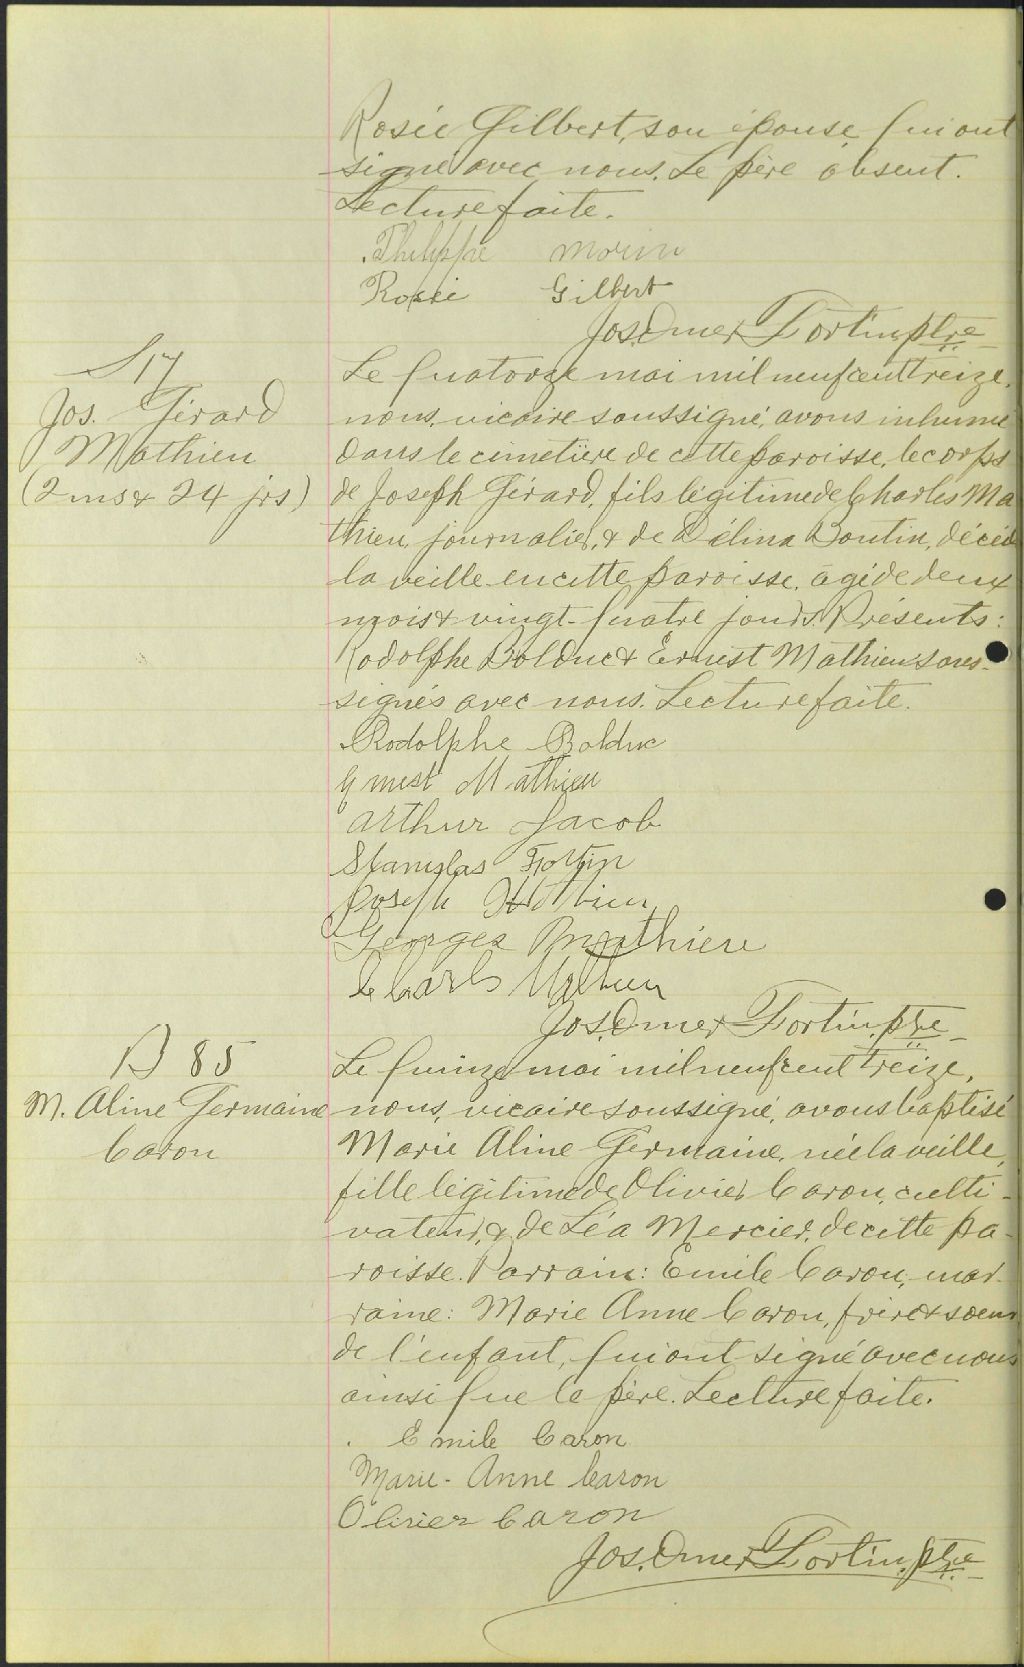 Rosée Gilbert, son épouse, qui ont
signé avec nous. Le père absent.
Lecture faite.
Philippe Morin
Rosée Gilbert
Jos. Omer Fortin, ptre
S 17
Jos. Gérard
Mathieu
(2 ms & 24 jrs)
Le quatorze mai mil neuf cent treize,
nous, vicaire soussigné, avons inhumé
dans le cimetière de cette paroisse, le corps
de Joseph Gérard, fils légitime de Charles Ma
thieu, journalier, & de Délina Boutin, décédé
la veille en cette paroisse, âgé de deux
mois & vingt-quatre jours. Présents:
Rodolphe Bolduc & Ernest Mathieu sous-
signés avec nous. Lecture faite.
Rodolphe Bolduc
Ernest Mathieu
Arthur Jacob
Stanislas Fortin
Joseph Mathieu
Georges Mathieu
Charles Mathieu
Jos. Omer Fortin, ptre
B 85
M. Aline Germaine
Caron
Le quinze mai mil neuf cent treize,
nous, vicaire soussigné, avons baptisé
Marie Aline Germaine, née la veille,
fille légitime de Olivier Caron, culti-
vateur, & de Léa Mercier, de cette pa-
roisse. Parrain: Emile Caron, mar-
raine: Marie Anne Caron, frère & soeur
de l'enfant, qui ont signé avec nous
ainsi que le père. Lecture faite.
Emile Caron
Marie-Anne Caron
Olivier Caron
Jos. Omer Fortin, ptre